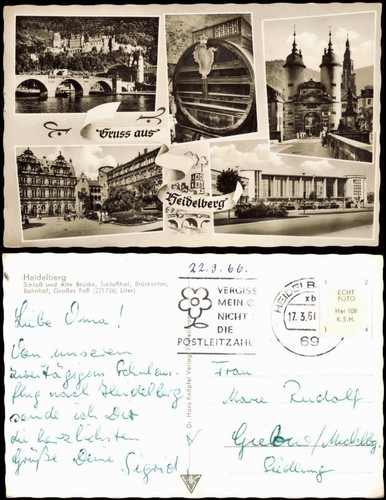 Gruss aus
Heidelberg
Heidelberg
Schloß und Alte Brücke, Schloßhof, Brückentor,
Bahnhof, Großes Faß (221 726) Liter)
22.3.66.
VERGISS
MEIN
NICHT
DIE
POSTLEITZAHL
HEIDELB
xb
17.3.66
69
ECHT
FOTO
Hei 108
K.S.H.
Dr. Hans Knöpfel Verlag
Liebe Oma!
Von unserem
zweitägigem Schulaus-
flug nach Heidelberg
sende ich Dir
die herzlichsten
Grüße Deine Sigrid
Frau
Marie Rudolf
Siedlung